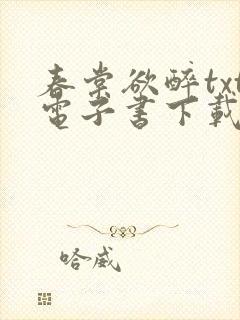 春棠欲醉txt
電子書下載
哈威